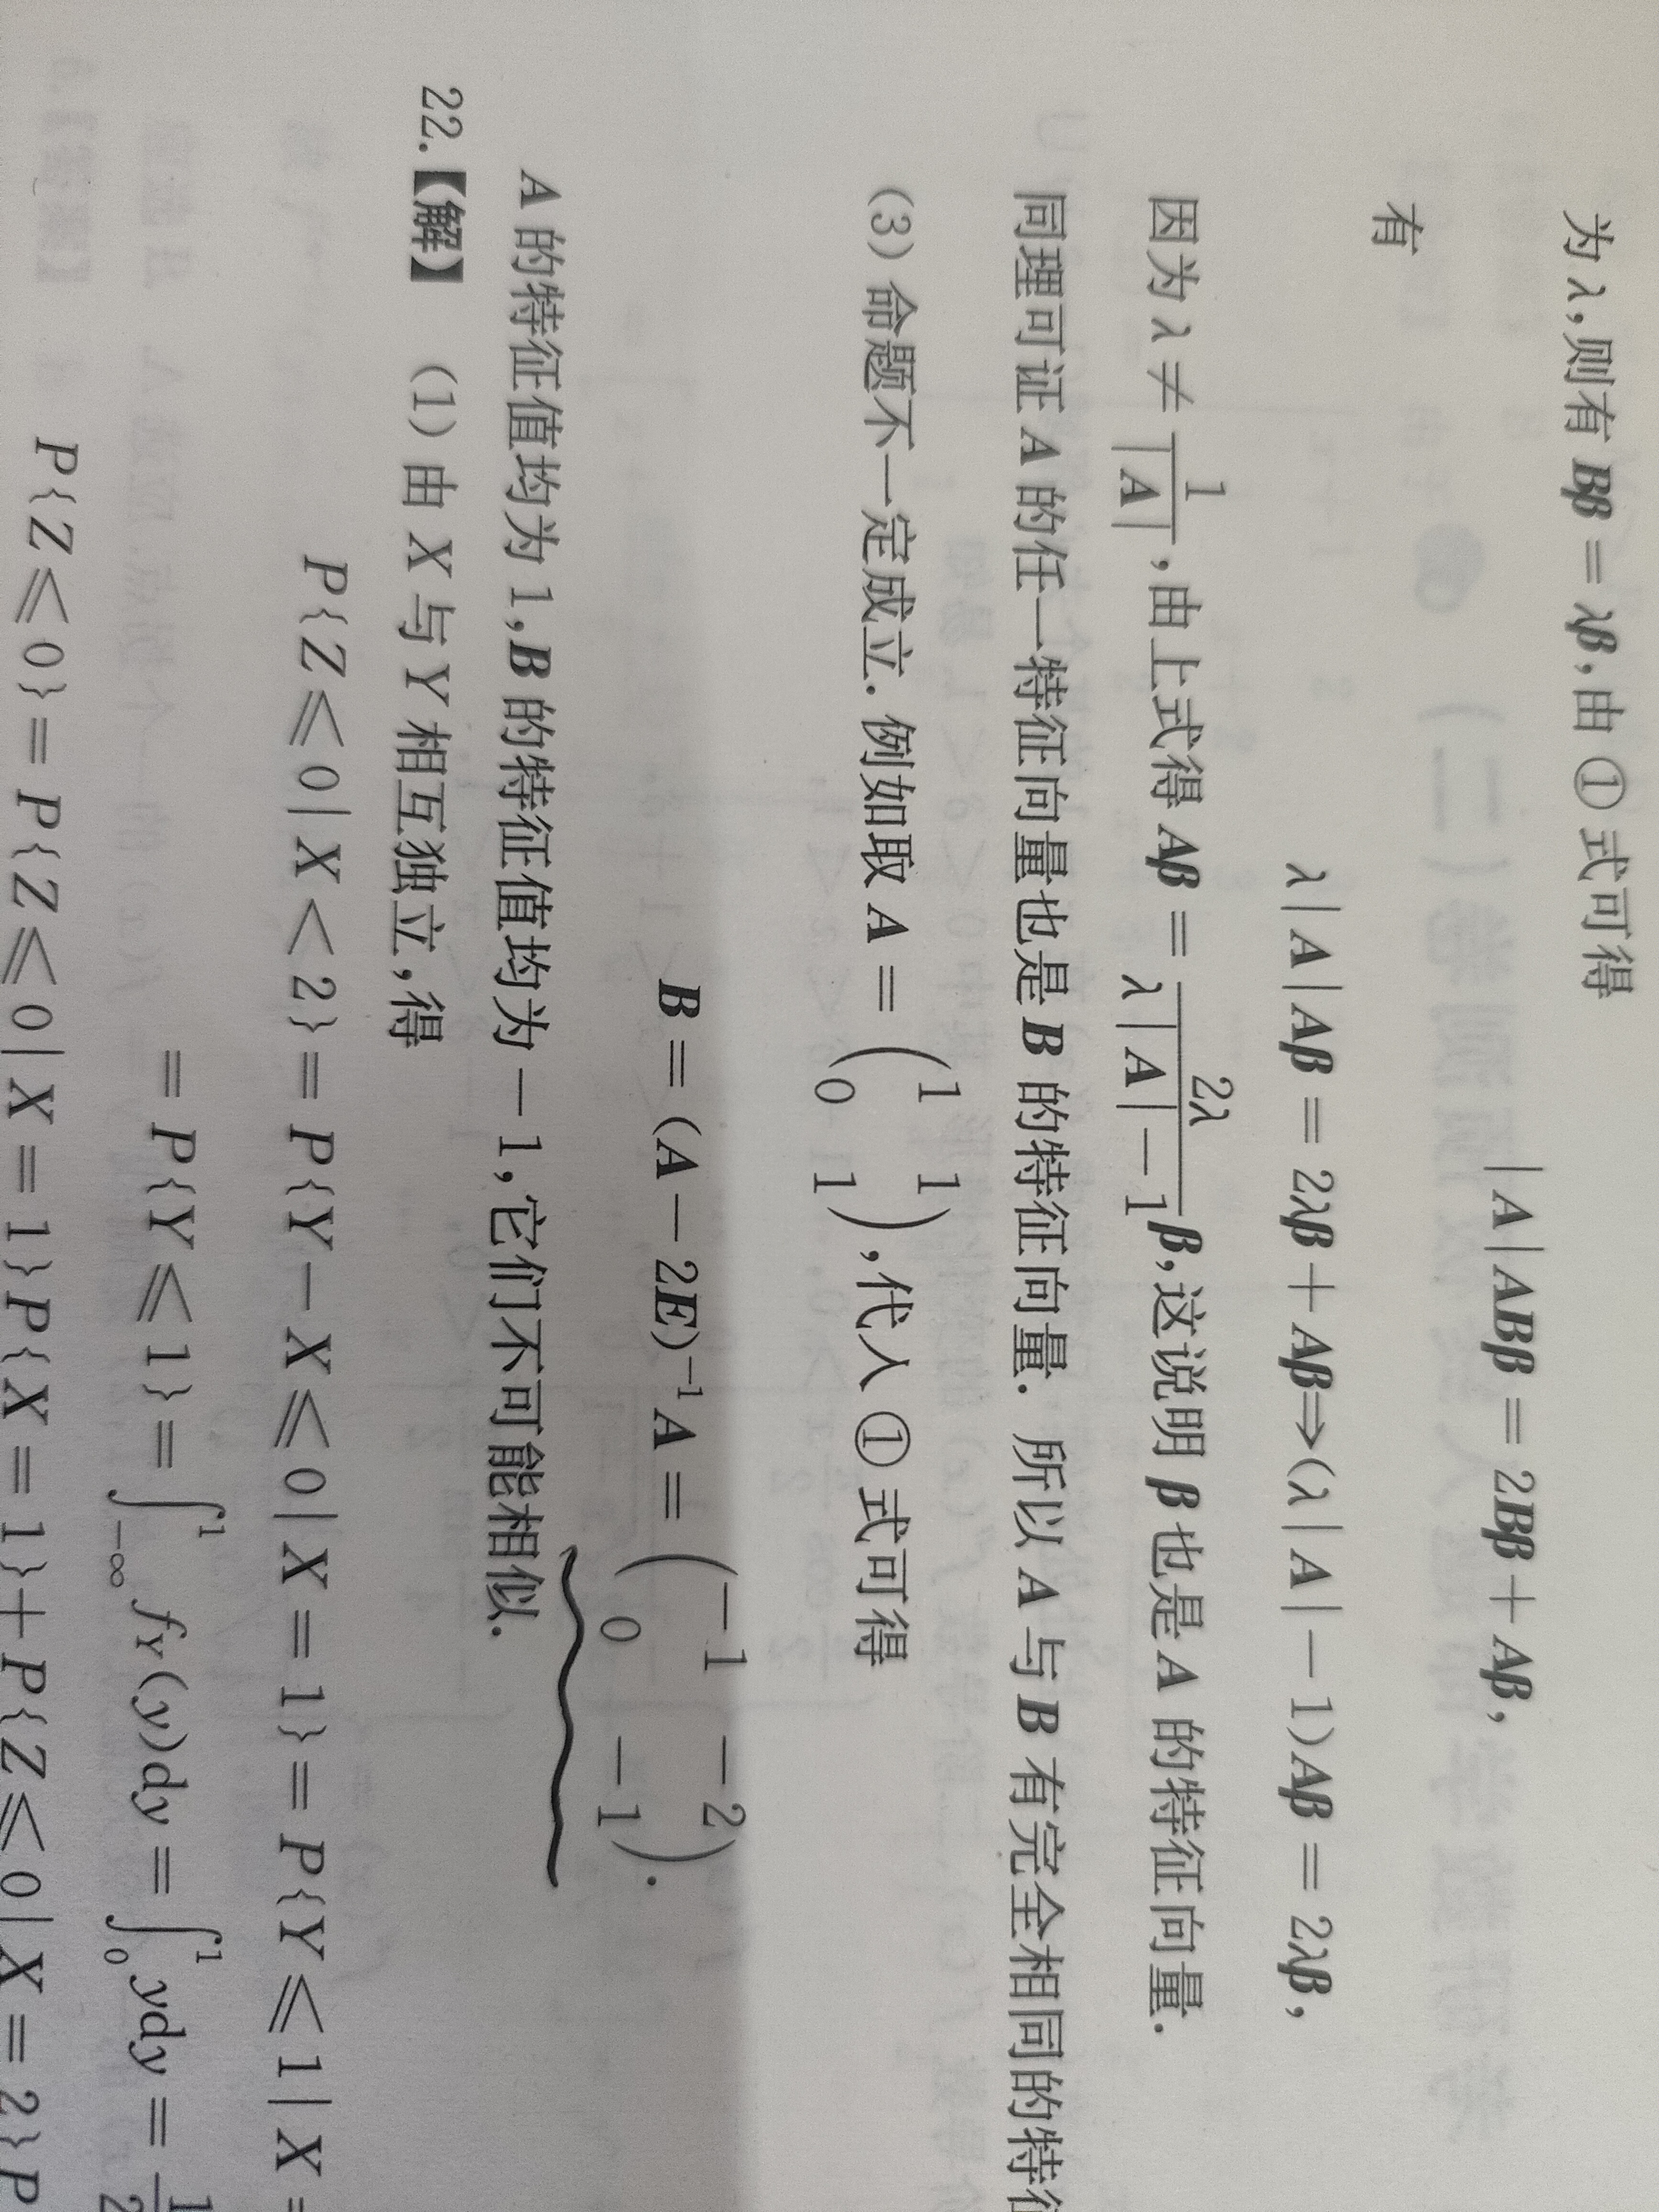 为 λ,则有 Bβ = λβ,由 ① 式可得
|A|ABβ = 2Bβ + Aβ,
有
λ|A|Aβ = 2λβ + Aβ⇒(λ|A| − 1)Aβ = 2λβ,
因为 λ ≠ 1/|A|,由上式得 Aβ = 2λ/(λ|A| − 1)β,这说明 β 也是 A 的特征向量.
同理可证 A 的任一特征向量也是 B 的特征向量. 所以 A 与 B 有完全相同的特征
(3) 命题不一定成立. 例如取 A = (1 1
0 1),代入 ① 式可得
B = (A − 2E)⁻¹A = (−1 −2
0 −1).
A 的特征值均为 1,B 的特征值均为 − 1,它们不可能相似.
22.【解】 (1) 由 X 与 Y 相互独立,得
P{Z ⩽ 0|X < 2} = P{Y − X ⩽ 0|X = 1} = P{Y ⩽ 1|X =
= P{Y ⩽ 1} = ∫₋∞¹ f_Y(y)dy = ∫₀¹ ydy = 1/2
P{Z ⩽ 0} = P{Z ⩽ 0|X = 1}P{X = 1} + P{Z ⩽ 0|X = 2}P